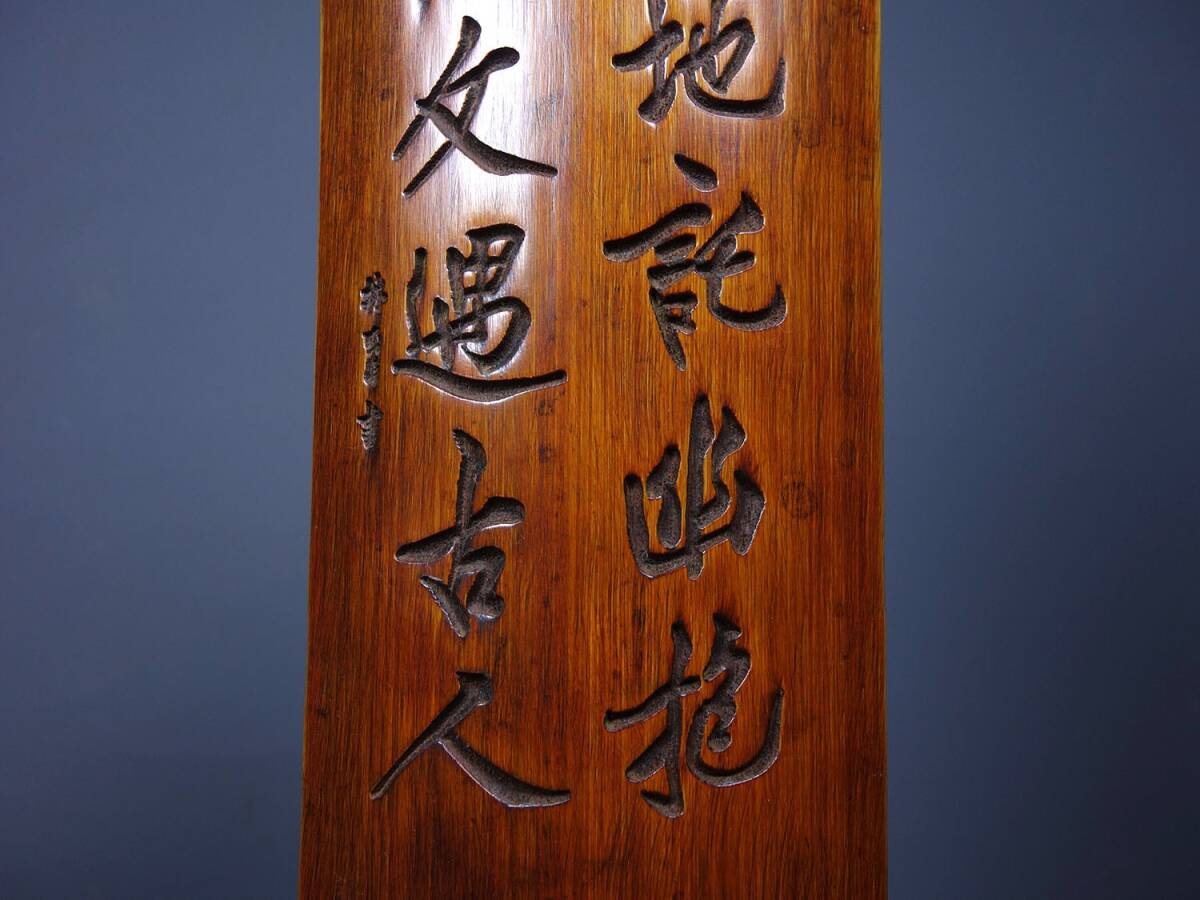 地託幽抱
文遇古人